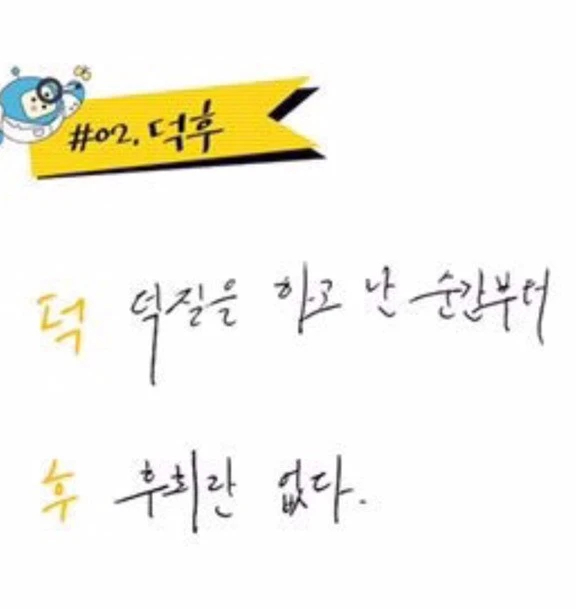 #02. 덕후
덕 덕질을 하고 난 순간부터
후 후회란 없다.